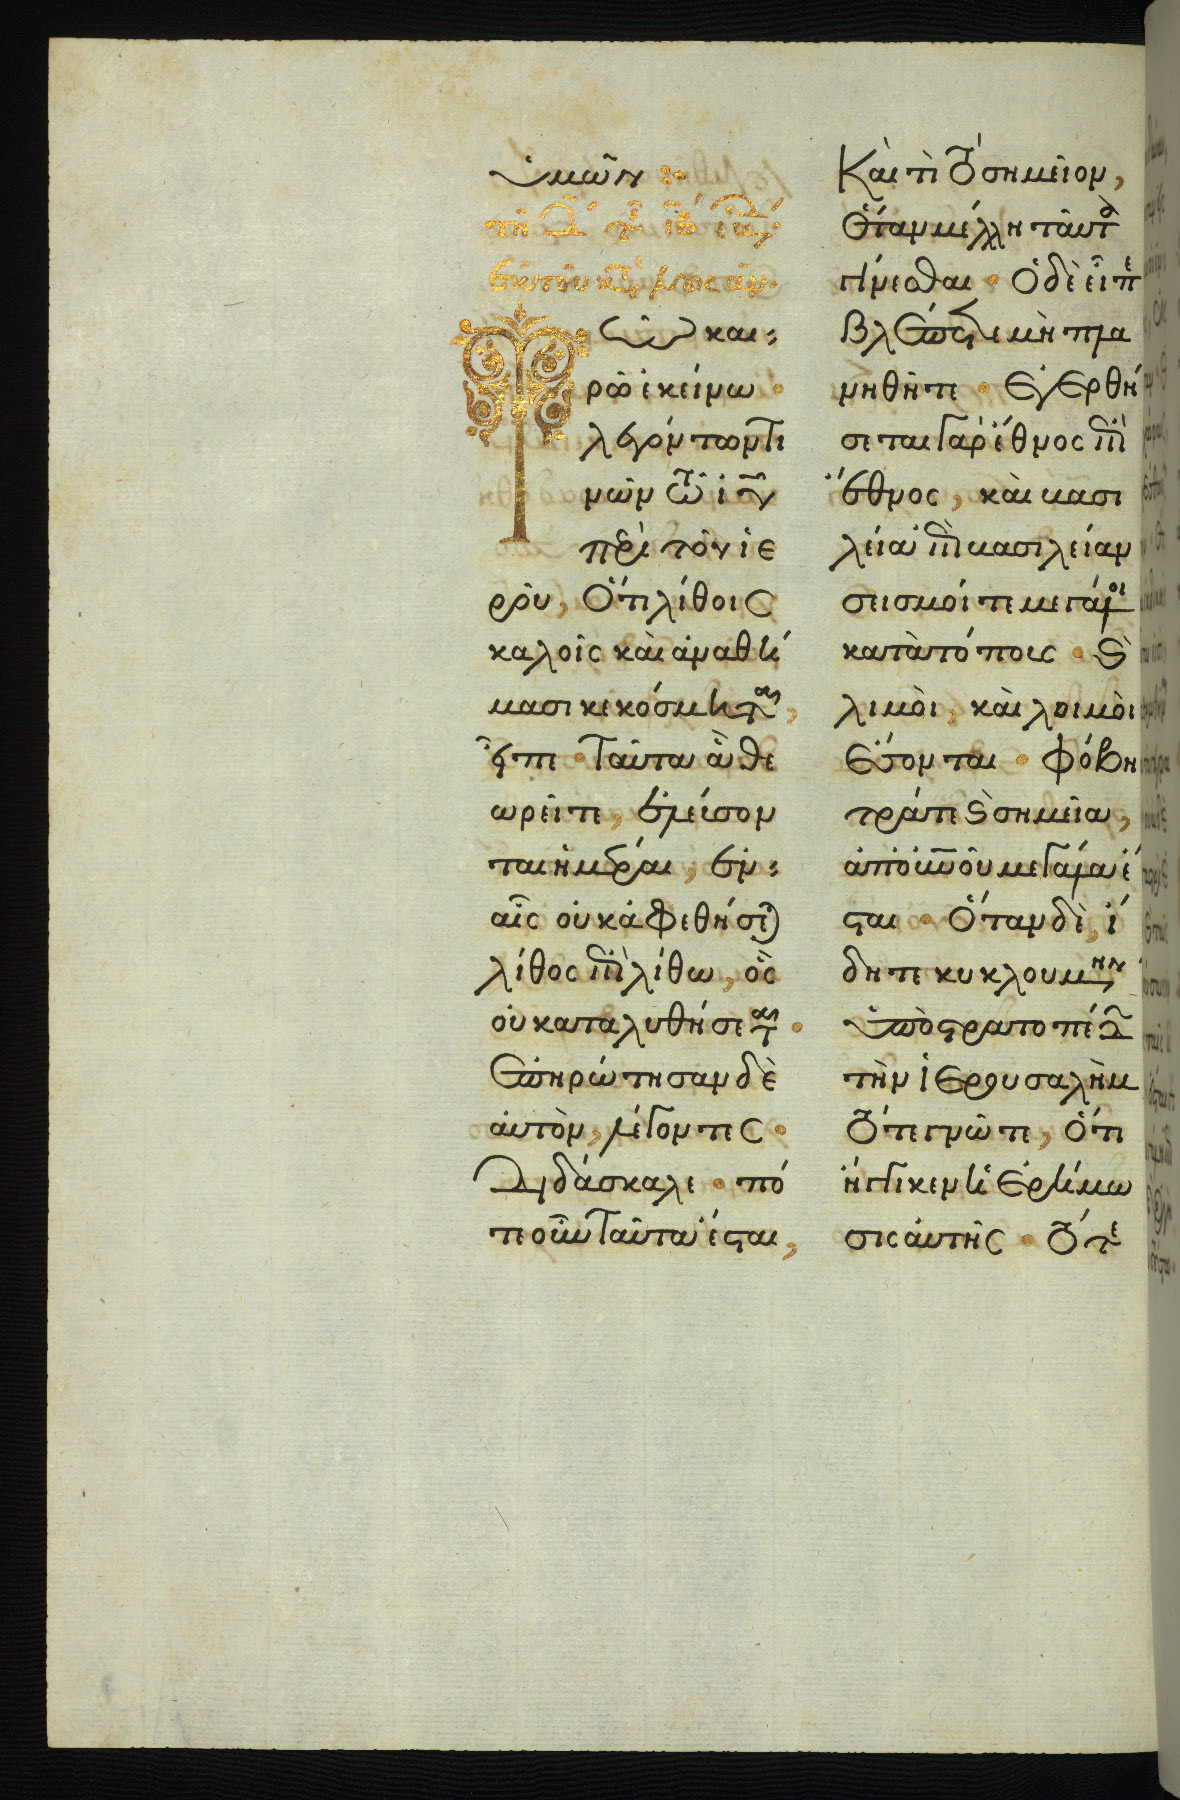 ὑμῶν :~
τῇ δ τ ιβ εβδ
ἐκ τοῦ κατ λουκαν·
Τῶ και-
ρῶ ἐκείνω ·
λεγόντων τι
νων τῶ ιυ
περὶ τοῦ ἱε
ροῦ, ὅτι λίθοις
καλοῖς καὶ ἀναθή
μασι κεκόσμηται,
εἶπε · ταῦτα ἃ θε
ωρεῖτε, ἐλεύσον
ται ἡμέραι, ἐν-
αἷς οὐκ ἀφεθήσεται
λίθος ἐπὶ λίθω, ὃς
οὐ καταλυθήσεται ·
ἐπηρώτησαν δὲ
αὐτὸν, λέγοντες ·
Διδάσκαλε · πό
τε οὖν ταῦτα ἔσται,
καὶ τί τὸ σημεῖον,
ὅταν μέλλη ταῦτα
γίνεσθαι · ὁ δὲ εἶπε
βλέπετε μὴ πλα
νηθῆτε · ἐγερθή
σεται γὰρ ἔθνος ἐπὶ
ἔθνος, καὶ βασι
λεία ἐπὶ βασιλείαν
σεισμοί τε μεγάλοι
κατὰ τόπους · καὶ
λιμοὶ, καὶ λοιμοὶ
ἔσονται · φόβη
τράτε καὶ σημεῖα,
ἀπ' οὐνοῦ μεγάλα ἔ
σται · ὅταν δὲ, ἴ
δητε κυκλουμένην
ὑπὸ στρατοπέδων
τὴν ἱερουσαλὴμ
τότε γνῶτε, ὅτι
ἤγγικεν ἡ ἐρήμω
σις αὐτῆς · τότε